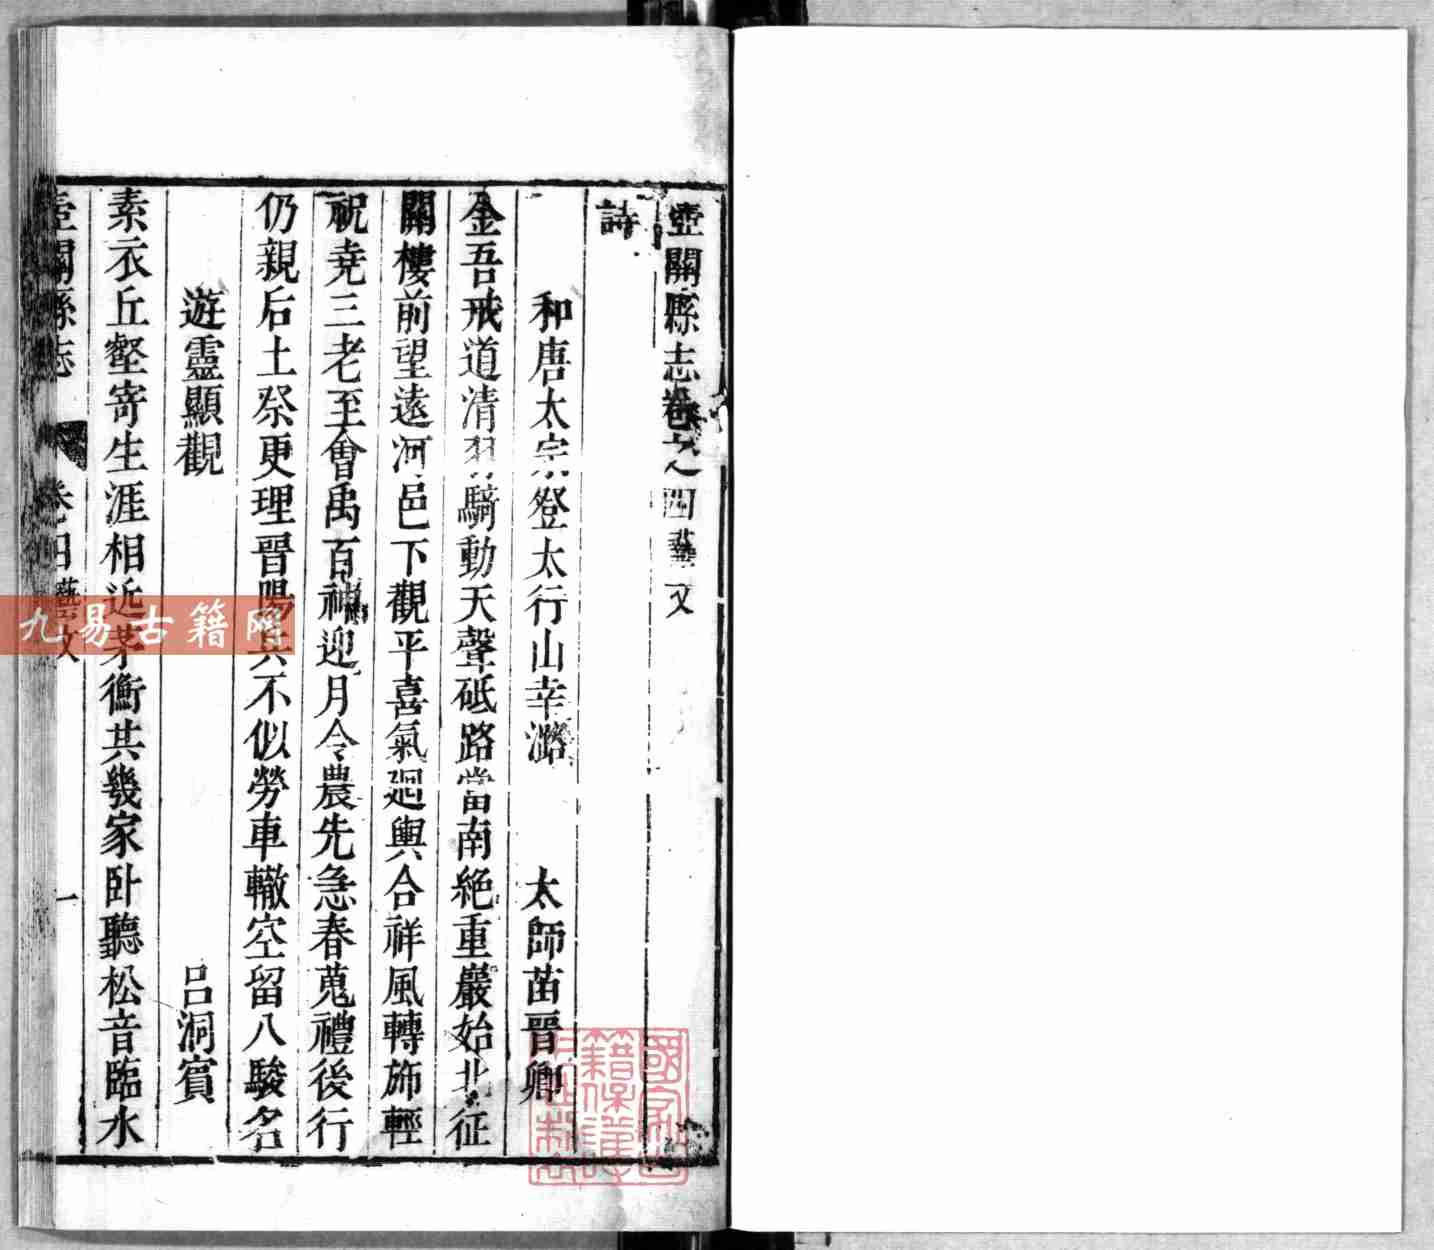 壺關縣志卷之四藝文
詩
和唐太宗登太行山幸潞 太師苗晉卿
金吾戒道清羽騎動天聲砥路當南絕重巖始北征
關樓前望遠河邑下觀平喜氣廻輿合祥風轉斾輕
祝堯三老至會禹百神迎月令農先急春蒐禮後行
仍親后土祭更理晉陽兵不似勞車轍空留八駿名
遊靈顯觀 呂洞賓
素衣丘壑寄生涯相近茅衡共幾家卧聽松音臨水
壺關縣志 卷四藝文 一
九易古籍网